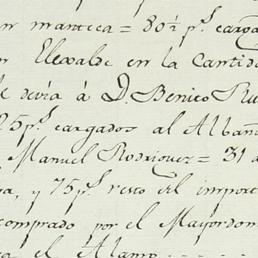 en manteca = 80½ p.s carga
n Elexalde en la Cantid
le devia á D. Benico Ru
25 p.s cargados al Albañ
Manuel Rodriguez = 31 a
va, y 75 p.s resto del import
comprado por el Mayordom
el Alamo